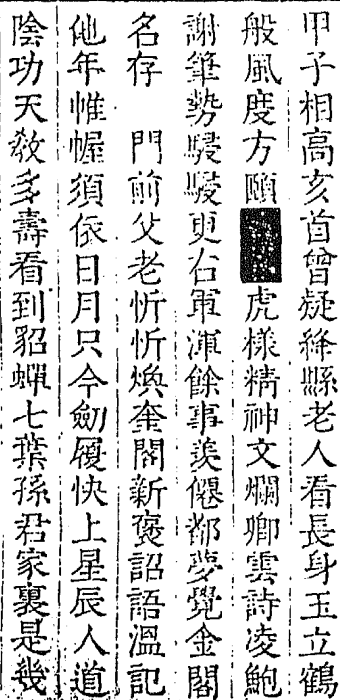 甲子相高亥首曾疑絳縣老人看長身玉立鶴
般風度方頤虎様精神文爛卿雲詩凌鮑
謝筆勢駸駸更右軍渾餘事羨僊都夢覺金閣
名存　門前父老忻忻煥奎閣新褒詔語溫記
他年帷幄須依日月只今劒履快上星辰人道
陰功天教多壽看到貂蟬七葉孫君家裏是幾